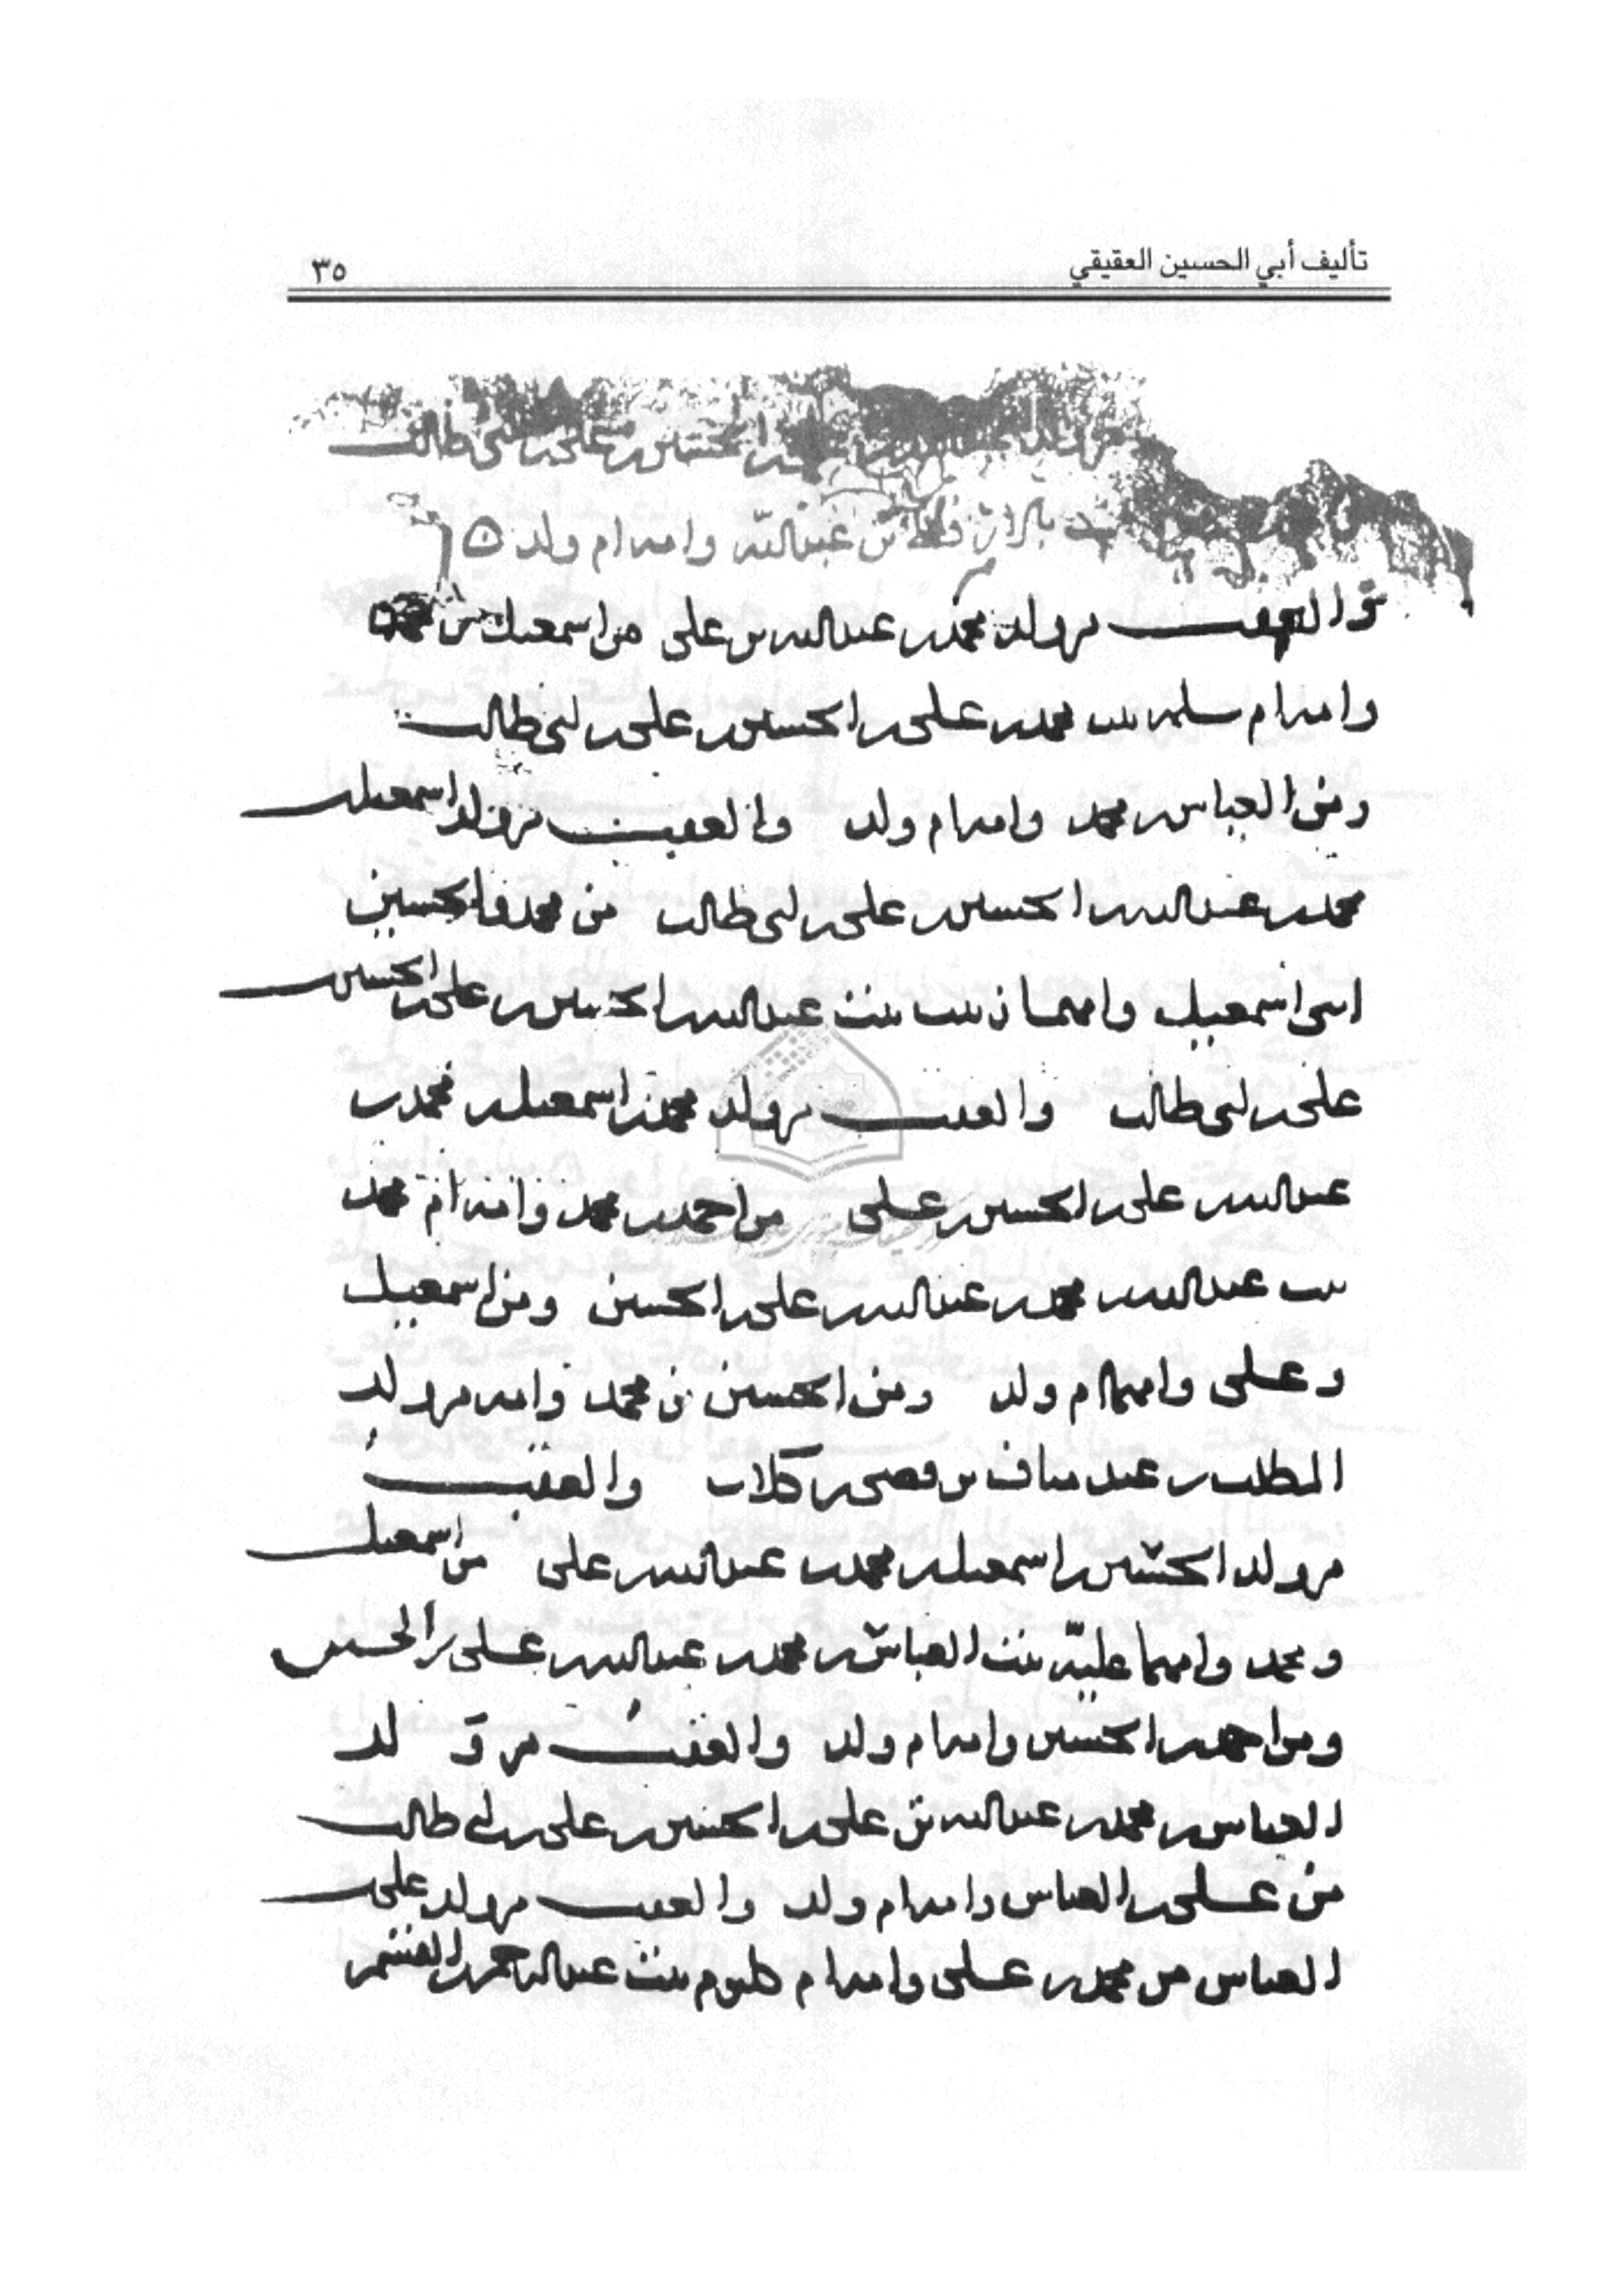 تأليف أبي الحسين العقيقي
٣٥
الحسين بن علي بن ابى طالب
عبدالله وامه ام ولد ه
والعقب من ولد محمد بن عبدالله بن على من اسمعيل بن محمد
وامه ام سلمه بنت محمد بن على بن الحسين بن على بن ابى طالب
ومن العباس بن محمد وامه ام ولد والعقب من ولد اسمعيل
محمد بن عبدالله بن الحسين بن على بن ابى طالب من محمد والحسين
ابنى اسمعيل وامهما زينب بنت عبدالله بن الحسين بن على بن الحسين
على بن ابى طالب والعقب من ولد محمد بن اسمعيل بن محمد بن
عبدالله بن على بن الحسين بن على من احمد بن محمد وامه ام محمد
بنت عبدالله بن محمد بن عبدالله بن على بن الحسين ومن اسمعيل
وعلى وامهما ام ولد ومن الحسين بن محمد وامه من ولد
المطلب بن عبد مناف بن قصى بن كلاب والعقب
من ولد الحسين بن اسمعيل بن محمد بن عبدالله بن على من اسمعيل
ومحمد وامهما عليّه بنت العباس بن محمد بن عبدالله بن على بن الحسين
ومن احمد بن الحسين وامه ام ولد والعقب من و لد
العباس بن محمد بن عبدالله بن على بن الحسين بن على بن ابى طالب
من على بن العباس وامه ام ولد والعقب من ولد على
العباس من محمد بن على وامه ام كلثوم بنت عبدالله